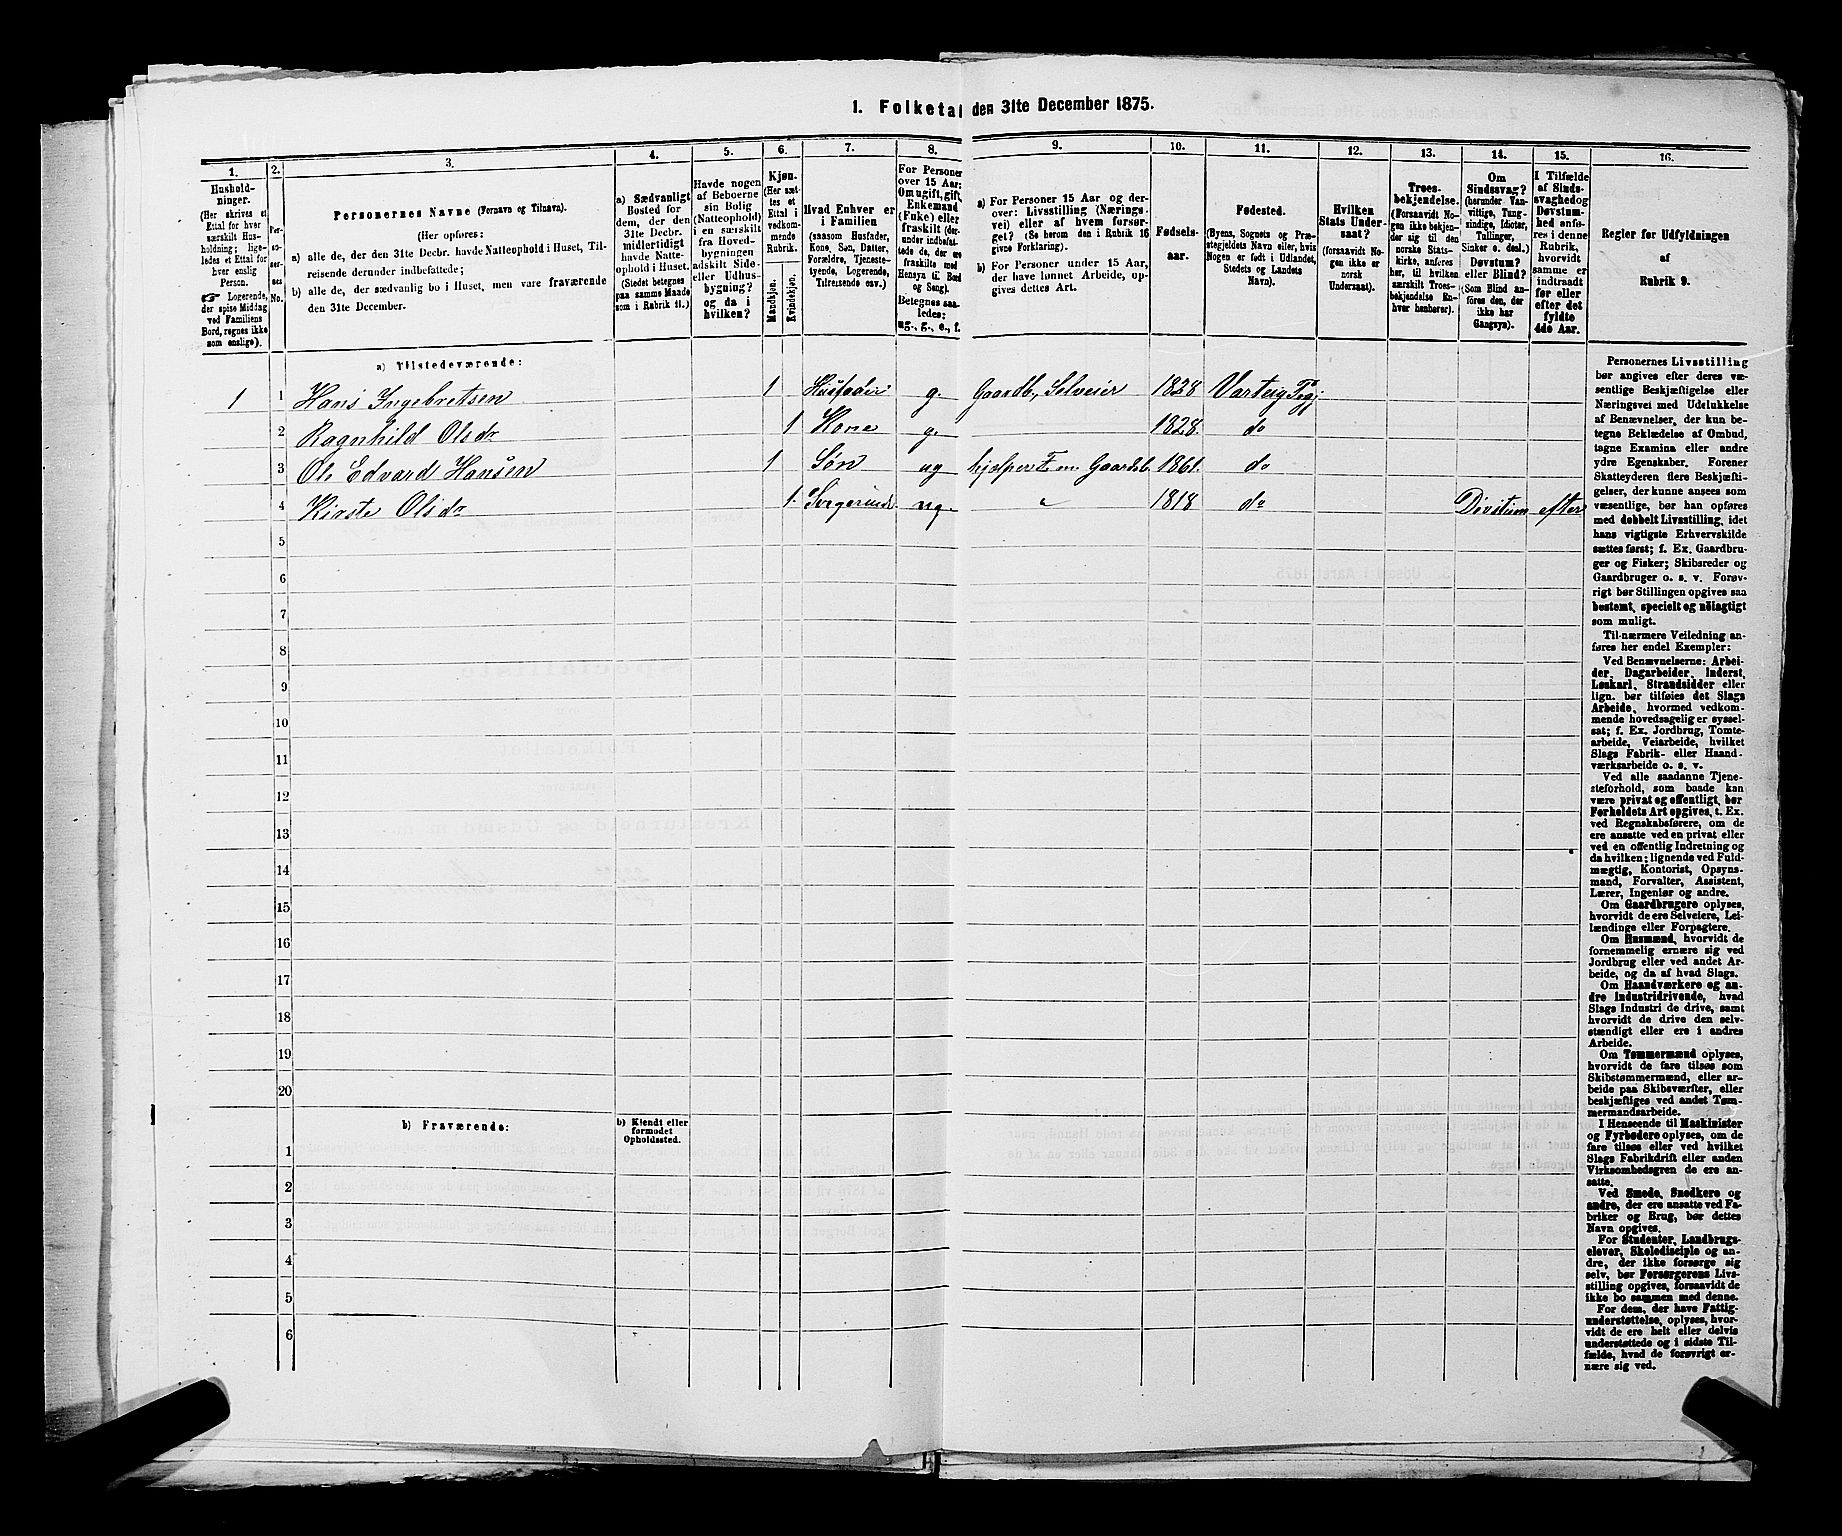 1. Folketal den 31te December 1875.
1.
2.
3.
4.
5.
6.
7.
8.
9.
10.
11.
12.
13.
14.
15.
16.
Hushold-
ninger.
(Her skrives et
Ettal for hver
særskilt Hus-
holdning; lige-
ledes et Ettal for
hver enslig
Person.
☞ Logerende,
der spise Middag
ved Familiens
Bord, regnes ikke
som enslige).
Per-
so-
ner-
nes
No.
Personernes Navne (Fornavn og Tilnavn).
(Her opføres:
a) alle de, der den 31te Decbr. havde Natteophold i Huset, Til-
reisende derunder indbefattede;
b) alle de, der sædvanlig bo i Huset, men vare fraværende
den 31te December.
a) Sædvanligt
Bosted for
dem, der den
31te Decbr.
midlertidigt
havde Natte-
ophold i Huset.
(Stedet betegnes
paa samme Maade
som i Rubrik 11.)
Havde nogen
af Beboerne
sin Bolig
(Natteophold)
i en særskilt
fra Hoved-
bygningen
adskilt Side-
eller Udhus-
bygning?
og da i
hvilken?
Kjøn.
(Her sæt-
tes et
Ettal i
vedkom-
mende
Rubrik.
Mandkjøn.
Kvindekjøn.
Hvad Enhver er
i Familien
(saasom Husfader,
Kone, Søn, Datter,
Forældre, Tjeneste-
tyende, Logerende,
Tilreisende osv.)
For Personer
over 15 Aar:
Om ugift, gift,
Enkemand
(Enke) eller
fraskilt (der-
under indbefat-
tede de, der ere
fraskilte med
Hensyn til Bord
og Seng).
Betegnes saa-
ledes:
ug., g., e., f.
a) For Personer 15 Aar og der-
over: Livsstilling (Nærings-
vei) eller af hvem forsør-
get? (Se herom den i Rubrik 16
givne Forklaring).
b) For Personer under 15 Aar,
der have lønnet Arbeide, op-
gives dettes Art.
Fødsels-
aar.
Fødested.
(Byens, Sognets og Præ-
stegjeldets Navn eller, hvis
Nogen er født i Udlandet,
Stedets og Landets
Navn).
Hvilken
Stats Under-
saat?
(forsaavidt No-
gen ikke er
norsk
Undersaat).
Troes-
bekjendelse.
(Forsaavidt No-
gen ikke bekjen-
der sig til den
norske Stats-
kirke, anføres
her, til hvilken
særskilt Troes-
bekjendelse En-
hver henhører).
Om
Sindssvag?
(herunder Van-
vittige, Tung-
sindige, Idioter,
Tullinger,
Sinker o. desl.)
Døvstum?
eller Blind?
(Som Blind an-
føres den, der
ikke har
Gangsyn).
I Tilfælde
af Sinds-
svaghed og
Døvstum-
hed anfø-
res i denne
Rubrik,
hvorvidt
samme er
indtraadt
før eller
efter det
fyldte
4de Aar.
Regler for Udfyldningen
af
Rubrik 9.
a) Tilstedeværende:
1 1 Hans Ingebretsen 1 Husfader g. Gaardb., Selveier 1828 Varteig
2 Ragnhild Olsdr 1 Kone g. 1828. do
3 Ole Edvard Hansen 1 Søn ug hjelper F. m. Gaardsb. 1861. do
4 Kirste Olsdr 1. ug. 1818 do Døvstum efter
5
6
7
8
9
10
11
12
13
14
15
16
17
18
19
20
b) Fraværende:
b) Kjendt eller
formodet
Opholdssted.
1
2
3
4
5
6
Personernes Livsstilling
bør angives efter deres væ-
sentlige Beskjæftigelse eller
Næringsvei med Udelukkelse
af Benævnelser, der kun be-
tegne Beklædelse af Ombud,
tagne Examina eller andre
ydre Egenskaber. Forener
Skatteyderen flere Beskjæfti-
gelser, der kunne ansees som
væsentlige, bør han opføres
med dobbelt Livsstilling, idet
hans vigtigste Erhvervskilde
sættes først; f. Ex. Gaardbru-
ger og Fisker; Skibsreder og
Gaardbruger o. s. v. Forøv-
rigt bør Stillingen opgives saa
bestemt, specielt og nöiagtigt
som muligt.
Til nærmere Veiledning an-
føres her endel Exempler:
Ved Benævnelserne: Arbei-
der, Dagarbeider, Inderst,
Løskarl, Strandsidder eller
lign. bør tilføies det Slags
Arbeide, hvormed vedkom-
mende hovedsagelig er syssel-
sat; f. Ex. Jordbrug, Tomte-
arbeide, Veiarbeide, hvilket
Slags Fabrik- eller Haand-
værksarbeide o. s. v.
Ved alle saadanne Tjene-
steforhold, som baade kan
være privat og offentligt, bør
Forholdets Art opgives, t. Ex.
ved Regnskabsførere, om de
ere ansatte ved en privat eller
ved en offentlig Indretning og
da hvilken; lignende ved Fuld-
mægtig, Kontorist, Opsyns-
mand, Forvalter, Assistent,
Lærer, Ingeniør og andre.
Om Gaardbrugere oplyses,
hvorvidt de ere Selveiere, Lei-
lændinge eller Forpagtere.
Om Husmænd, hvorvidt de
fornemmelig ernære sig ved
Jordbrug eller ved andet Ar-
beide, og da af hvad Slags.
Om Haandværkere og an-
dre Industridrivende, hvad
Slags Industri de drive, samt
hvorvidt de drive den selv-
stændigt eller ere i andres
Arbeide.
Om Tømmermænd oplyses,
hvorvidt de fare tilsøs som
Skibstømmermænd, eller ar-
beide paa Skibsværfter, eller
beskjæftiges ved andet Tøm-
mermandsarbeide.
I Henseende til Maskinister
og Fyrbødere oplyses, om de
fare tilsøs eller ved hvilket
Slags Fabrikdrift eller anden
Virksomhedsgren de ere an-
satte.
Ved Smede, Snedkere og
andre, der ere ansatte ved Fa-
briker og Brug, bør dettes
Navn opgives.
For Studenter, Landbrugs-
elever, Skoledisciple og an-
dre, der ikke forsørge sig
selv, bør Forsørgerens Livs-
stilling opgives, forsaavidt de
ikke bo sammen med denne.
For dem, der have Fattig-
understøttelse, oplyses, hvor-
vidt de ere helt eller delvis
understøttede og i sidste Til-
fælde, hvad de forøvrigt er-
nære sig ved.